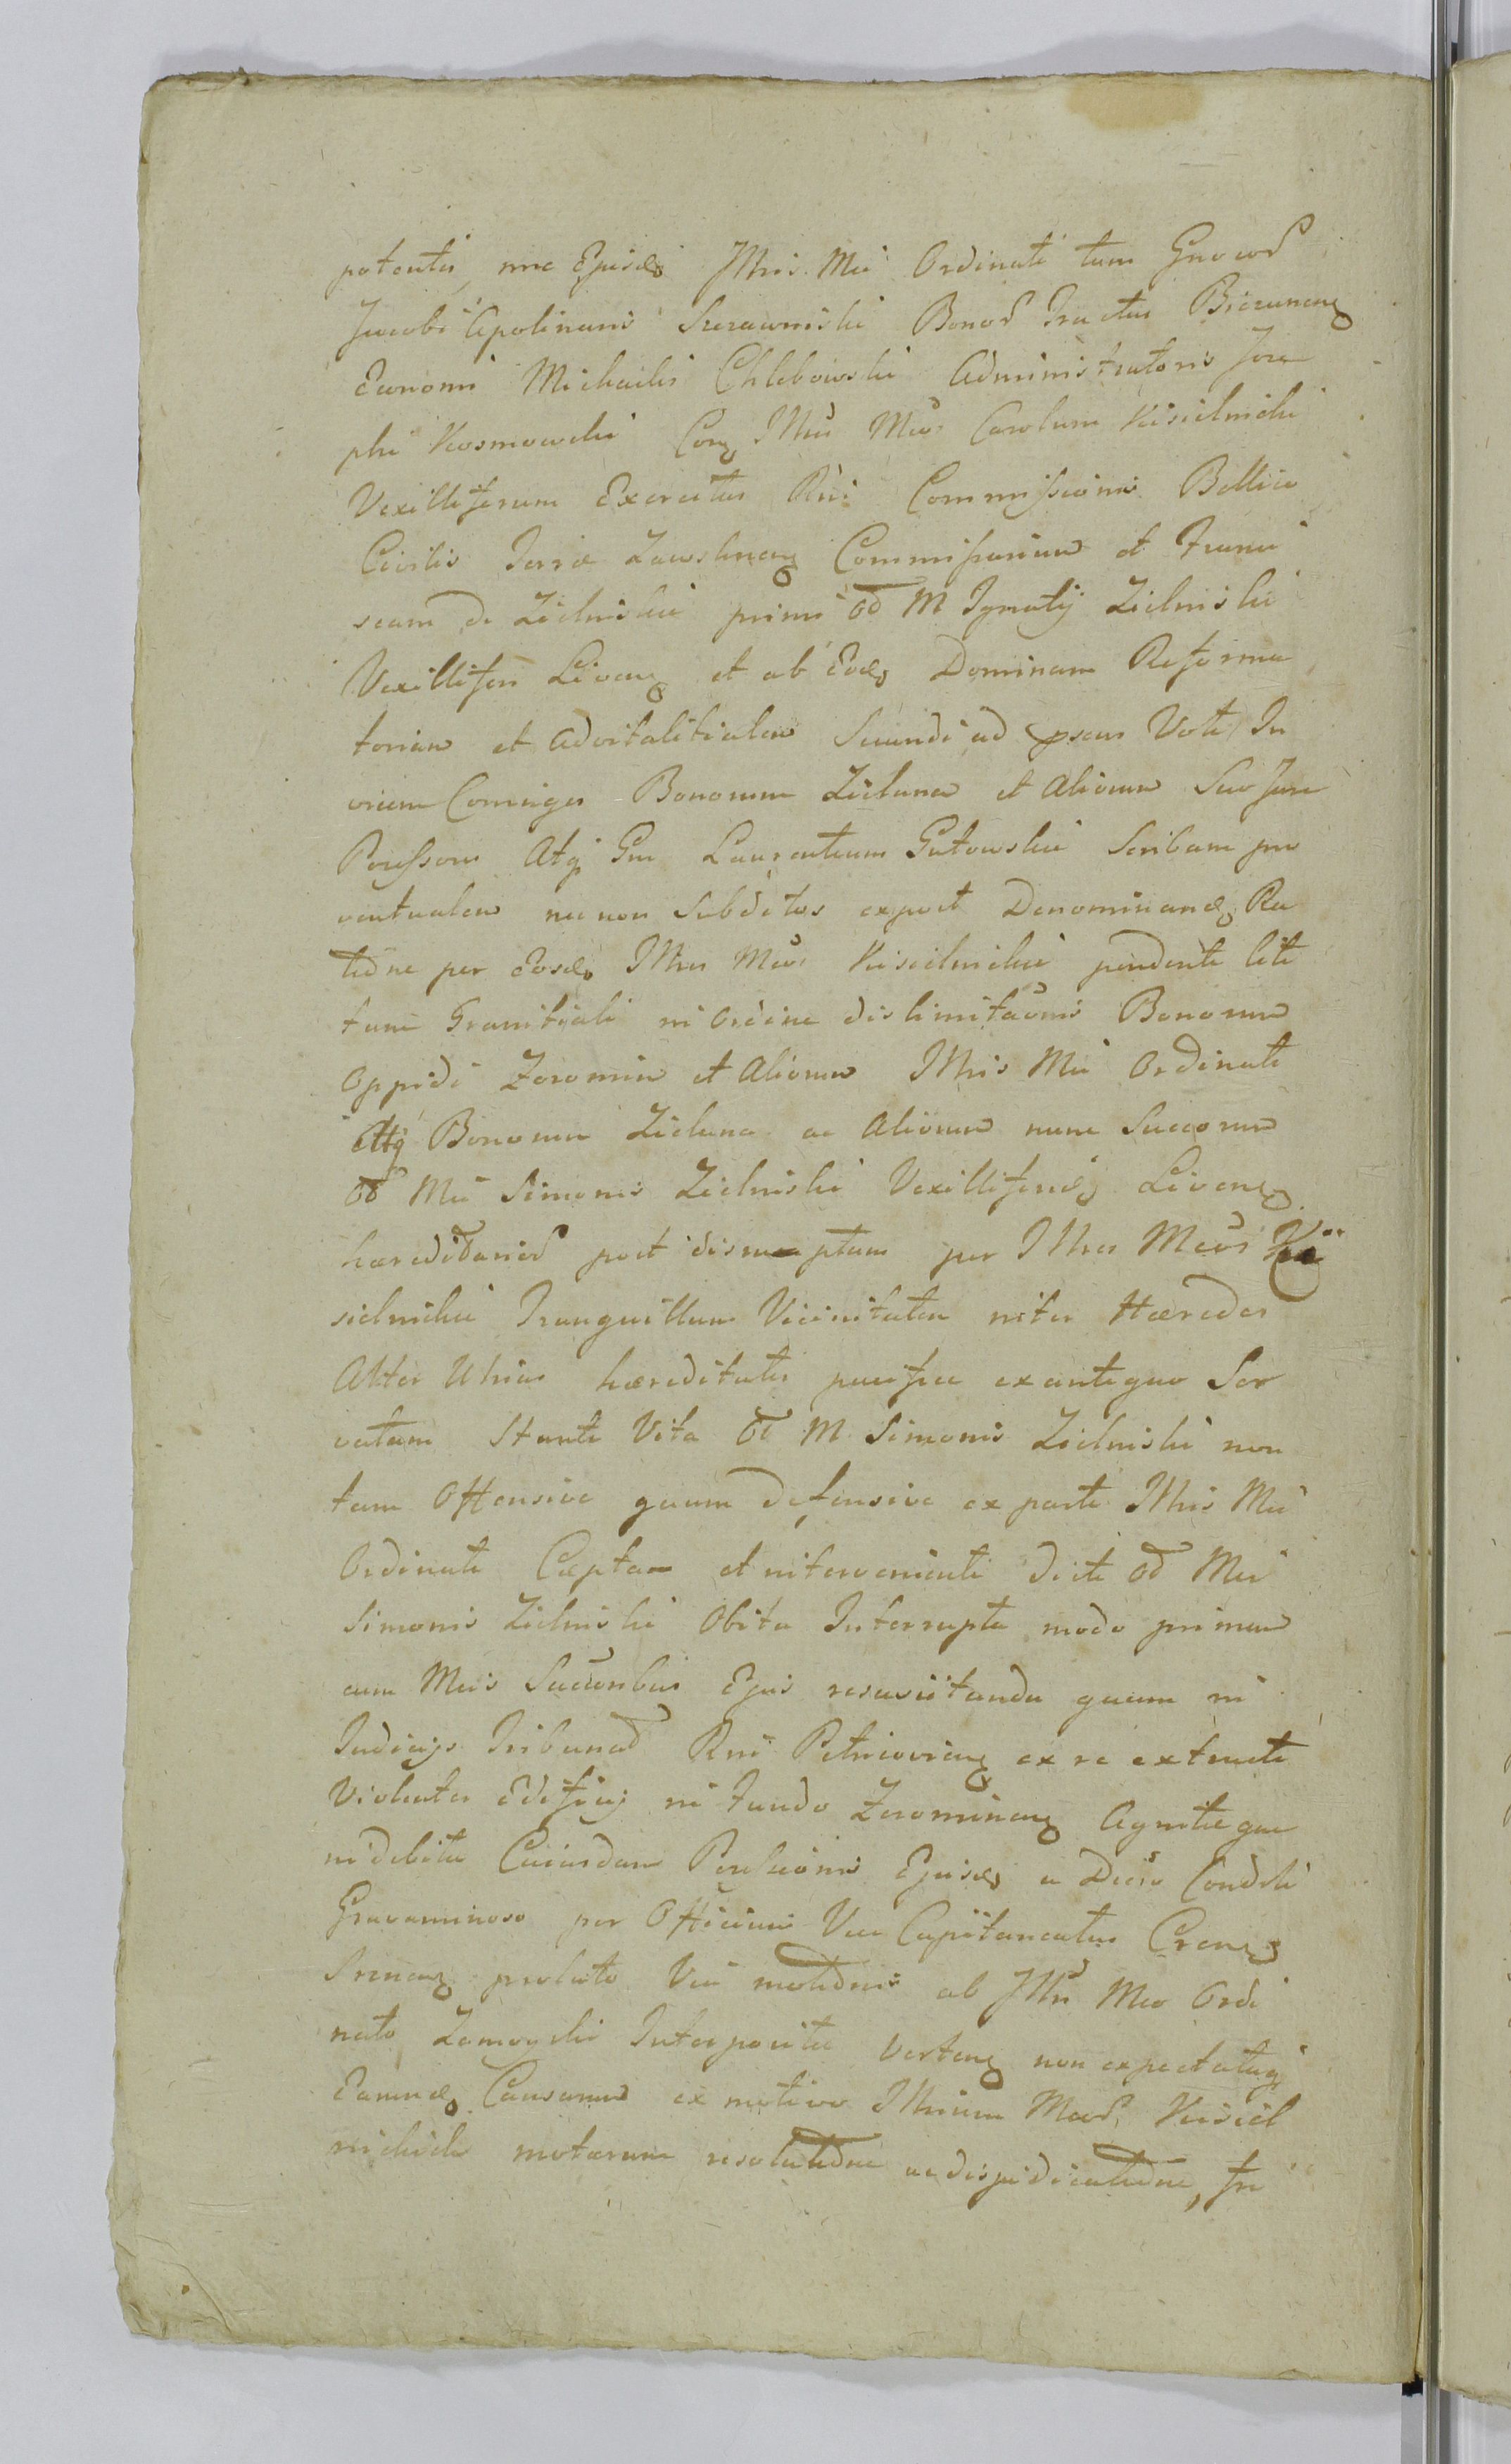 potentis, nec Ejusd. Jllris Mci Ordinati tum Gnorod
Jacobi Apolinaris Szczawinski Bonor Tractus Biezuneng
Economi Michaelis Chlebowski Administratoris Jose
phi Kosmowski Cong Jllres Mcos Carolum Kisielnicki
Vexilliferum Exercitus Rni Commissionis Bellico
Civilis Terræ Zawskneng Commissarium et Franci
scam de Zielinskie primi od M Ignatij Zielinski
Vexilliferi Liveng et ab Eod. Dominam Reforma
toriam et advitalitialem Secundi ad psens Voti In
oriem Conniges Bonorum Zieluna et aliorum Suo Jure
Possessores Atq Gm Laurentium Gutowski Scribam pro
ventualem necnon Subditos expost Denominand. Ra
tione per Eosd. Jllres Mcos Kisielnickie pendente lite
tum Granitiali in ordine dislimitaonis Bonorum
Oppidi Zoromin et Aliorum Jllris Mci Ordinati
Atq Bonorum Zieluna ac Aliorum nunc Succorum
od Mci Simonis Zielinski Vexilliferi Liveng
hæreditarior post disruptam per Jllres Mcos Kii
sielnickie Tranquillam Vicinitatem inter Hæredes
Alter Utrius hæreditatis pacifice exantiquo Ser
vatam Stante Vita od M Simonis Zielinski non
tam Offensive quam defensive ex parte Jllris Mci
Ordinati Cæpta et interveniente dicti od Mci
Simonis Zielinski Obitu Interrupta modo primum
cum Mcis Succoribus Ejus resuscitanda quam in
Judicijs Tribunal Rni Petricoving ex re extructi
Violenter Edificij in fundo Zoromineng Agnitæque
indebitæ Cuiusdam Possessionis Ejusd. a Decio Condsli
Gravaminoso per Officium Vice Capitaneatus Creng
Srzeneng prolato Via motionis ab Jllri Mco Ordi
nato Zamoyski Interpositæ verteng non expectataq
Earund. Causarum ex motivo Jllrium Mcor Kisiel
nickich motarum resolutione ac disjudicatione, In